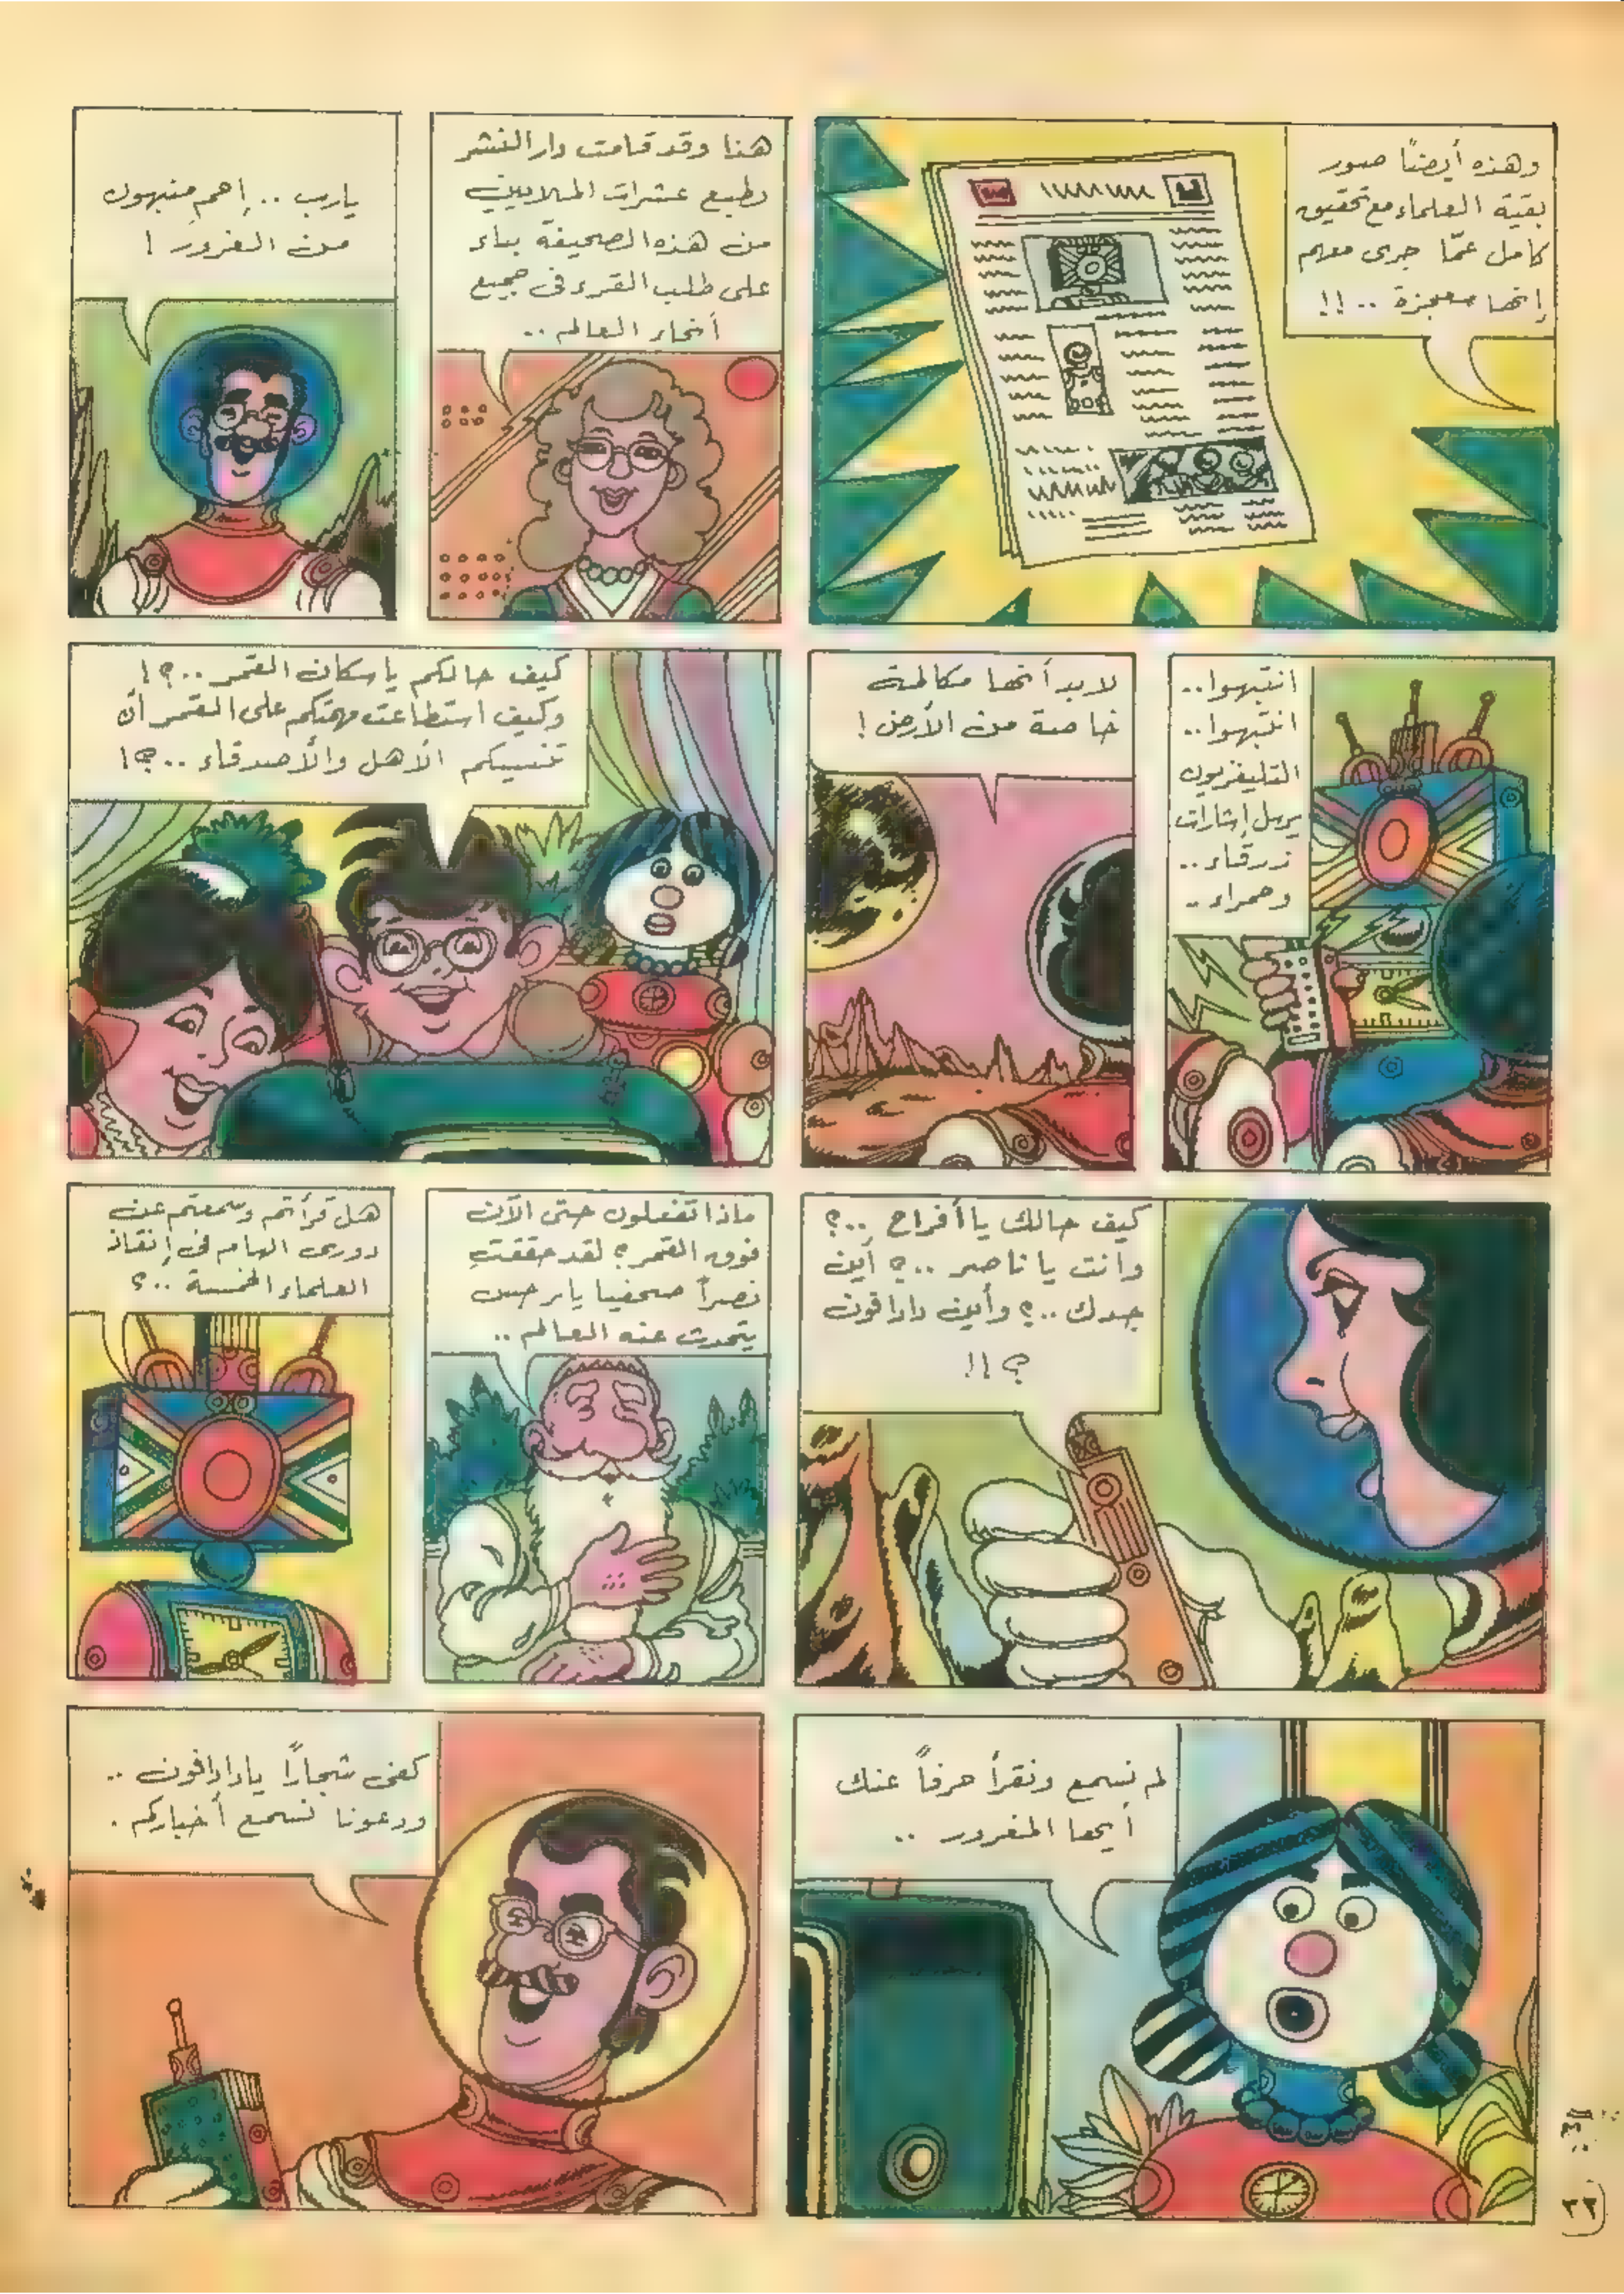 وهذه أيضًا صور
بقية العلماء مع تحقيق
كامل عمّا جرى معهم
إنها معجزة ..!!
هذا وقد قامت دار النشر
بطبع عشرات الملايين
من هذه الصحيفة بناء
على طلب القرء في جميع
أنحاء العالم ..
يارب .. إحمِ منبهون
من الغرور !
انتبهوا..
انتبهوا..
التليفزيون
يرسل إشارات
زرقاء ..
وحمراء ..
لابد أنها مكالمة
خاصة من الأرض !
كيف حالكم ياسكان القمر ..؟!
وكيف استطاعت مهمتكم على القمر أن
تنسيكم الأهل والأصدقاء ..؟!
كيف حالك يا أفراح ..؟
وانت يا ناصر ..؟ أين
جدك ..؟ وأين دادا فون
؟!!
ماذا تفعلون حتى الآن
فوق القمر؟ لقد حققت
نصرًا صحفيا يا نرجس
يتحدث عنه العالم ..
هل قرأتم وسمعتم عن
دورى الهام فى إنقاذ
العلماء الخمسة ..؟
لم نسمع ونقرأ حرفًا عنك
أيها المغرور ..
كفى شجارًا يادادافون ..
ودعونا نسمع أخباركم .
٢٢